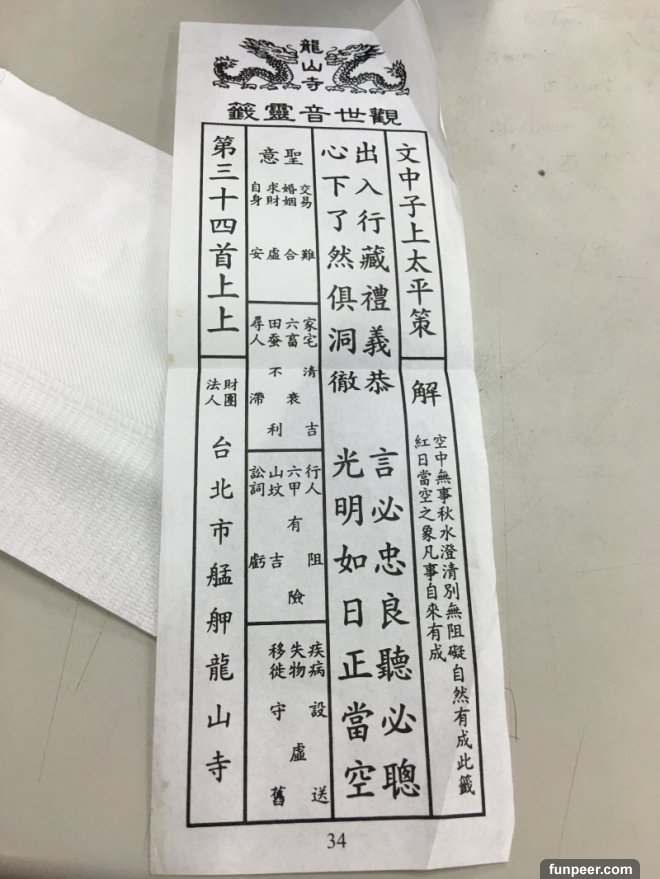 龍山寺
觀世音靈籤
文中子上太平策
解
空中無事秋水澄清別無阻礙自然有成此籤
紅日當空之象凡事自來有成
出入行藏禮義恭 言必忠良聽必聰
心下了然俱洞徹 光明如日正當空
聖意
交易 難
婚姻 合
求財 虛
自身 安
家宅 清吉
六畜 衰
田蚕 不利
尋人 滯
行人 阻
六甲 有險
山墳 吉
訟詞 虧
疾病 設送
失物 虛
移徙 守舊
第三十四首上上
財團法人
台北市艋舺龍山寺
34
funpeer.com